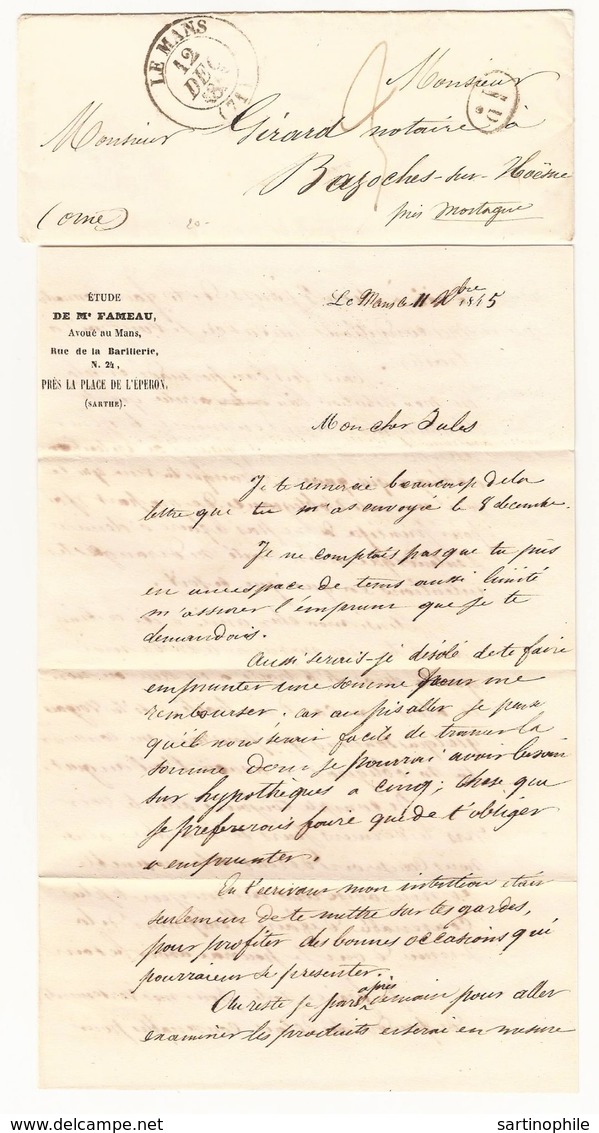 LE MANS
12
DEC.
(71)
Monsieur
Monsieur Girard notaire à
Bazoches-sur-Hoësne
(orne)
20-
près Mortagne
ÉTUDE
DE Me FAMEAU,
Avoué au Mans,
Rue de la Barillerie,
N. 24,
PRÈS LA PLACE DE L'ÉPERON,
(SARTHE).
Le Mans le 11 Xbre 1845
Mon cher Jules
Je te remercie beaucoup de la
lettre que tu m'as envoyée le 8 decembre.
Je ne comptais pas que tu pus
en un espace de tems aussi limité
m'assurer l'emprunt que je te
demandais.
Aussi serais-je désolé de te faire
emprunter une somme pour me
rembourser. car au pis aller je pense
qu'il nous serait facile de trouver la
somme dont je pourrai avoir besoin
sur hypothèques a cinq; chose que
je prefererais faire que de t'obliger
a emprunter.
En t'écrivant mon intention etait
seulement de te mettre sur tes gardes,
pour profiter des bonnes occasions qui
pourraient se presenter.
Au reste je pars après demain pour aller
examiner les produits et serai en mesure
sartinophile